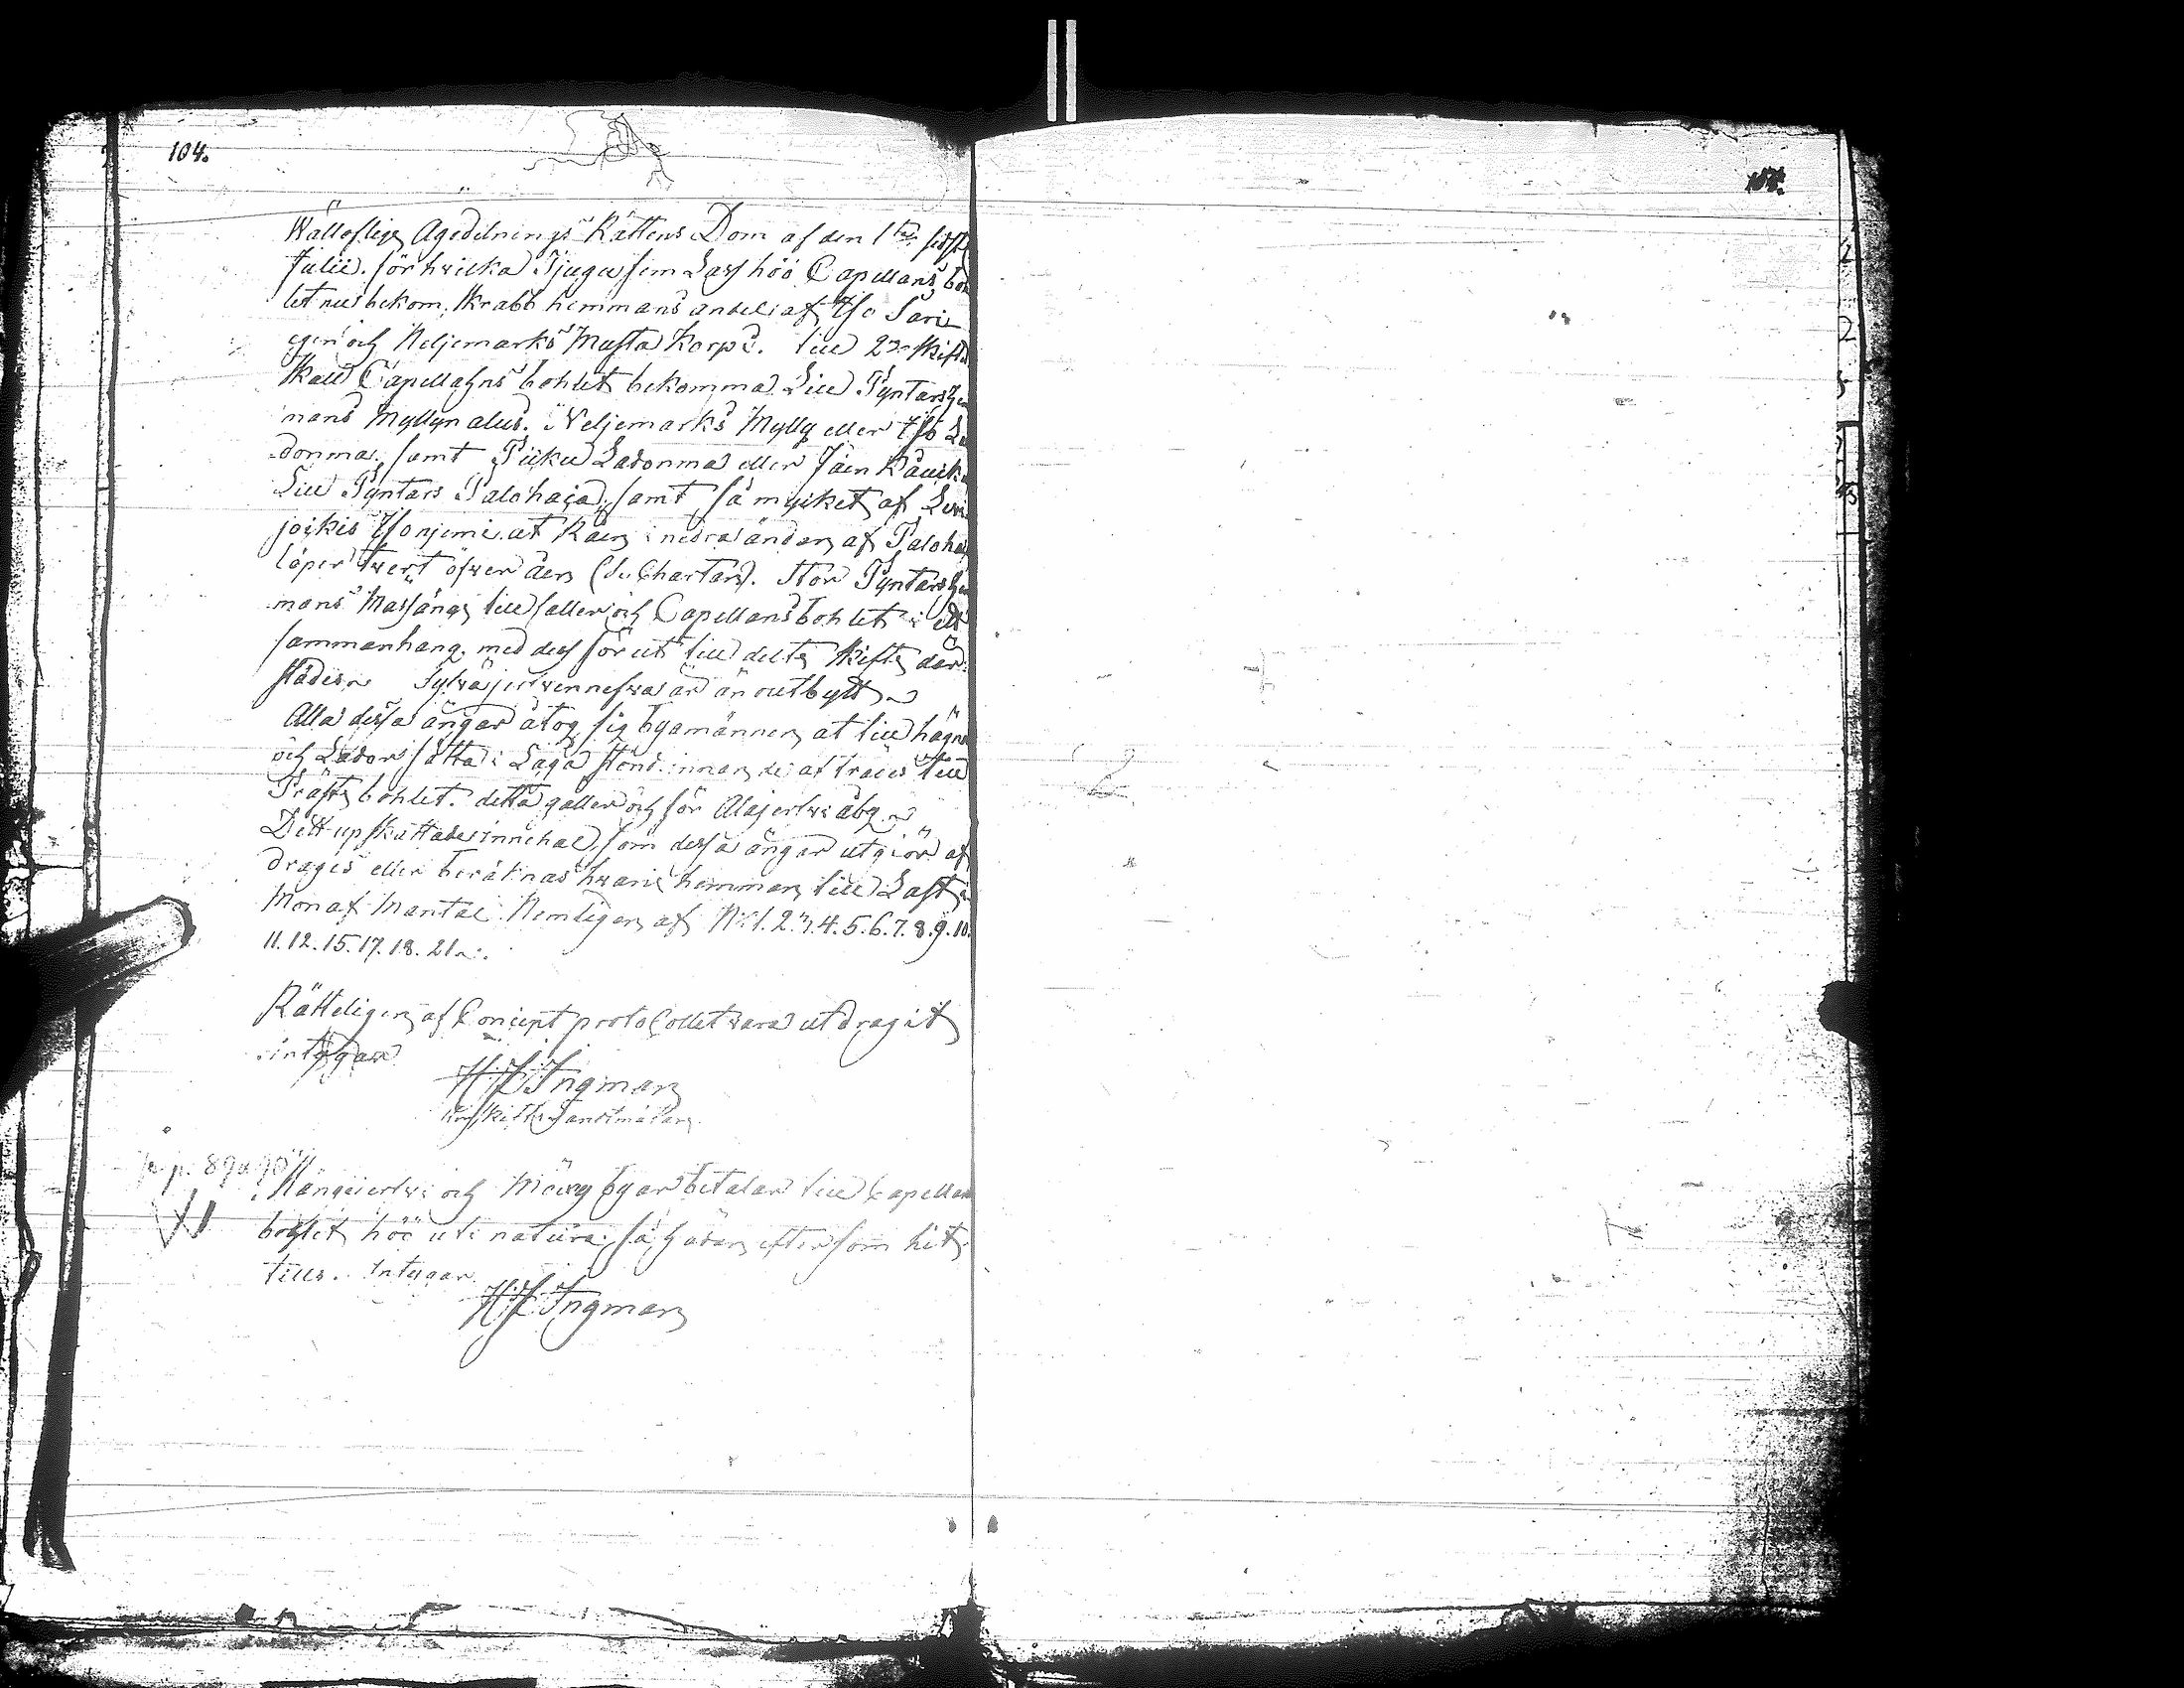 104.
Wälloflige Ägodelnings Rättens Dom af den 1
Julii. för hwilka Tjugu fem Lass höö Capellans bo
let nu bekom, Krabb hemmans andel af Iso Sari
egen och Neljemarks Musta Korpi. till 2 skifte
skall Capellahns bohlet bekomma Lill Pyntars hem
mans Myllyn alus. Neljemarks Mylly eller Iso La
donma, samt Picku Ladonma eller
Lill Pyntars Palohaca, samt så mycket af
jockis Isonjemi at Råen i nedra ändan af Paloha
löper twert öfwer den (Su Chartan). Stor Pyntars hem
mans Massäng till faller och Capellansbohlet i ett
sammanhang med dess för ut till delte skifte där
städes är än outbytt
Alla dessa ängar åtog sig byamännen at till hägna
och Lador sätta i Laga stånd innan de aftrades till
Präste bohlet. detta galler och för Alajerfwi äbg
Dett upskattade innehal, som dessa ängar utgiör af
drages eller beräknas hwarje hemman till Last i
Mon af Mantal Nemligen af No 1. 2. 3. 4. 5. 6. 7. 8. 9. 10.
11. 12. 15. 17. 18. 21
Rätteligen af Concept protocollet wara utdragit
intygar
H H Ingman
p. 89 90
och byar betalar till Capellan
bohlet höö uti natura, så hädan efter som hit
tills. Intygar
H H Ingman